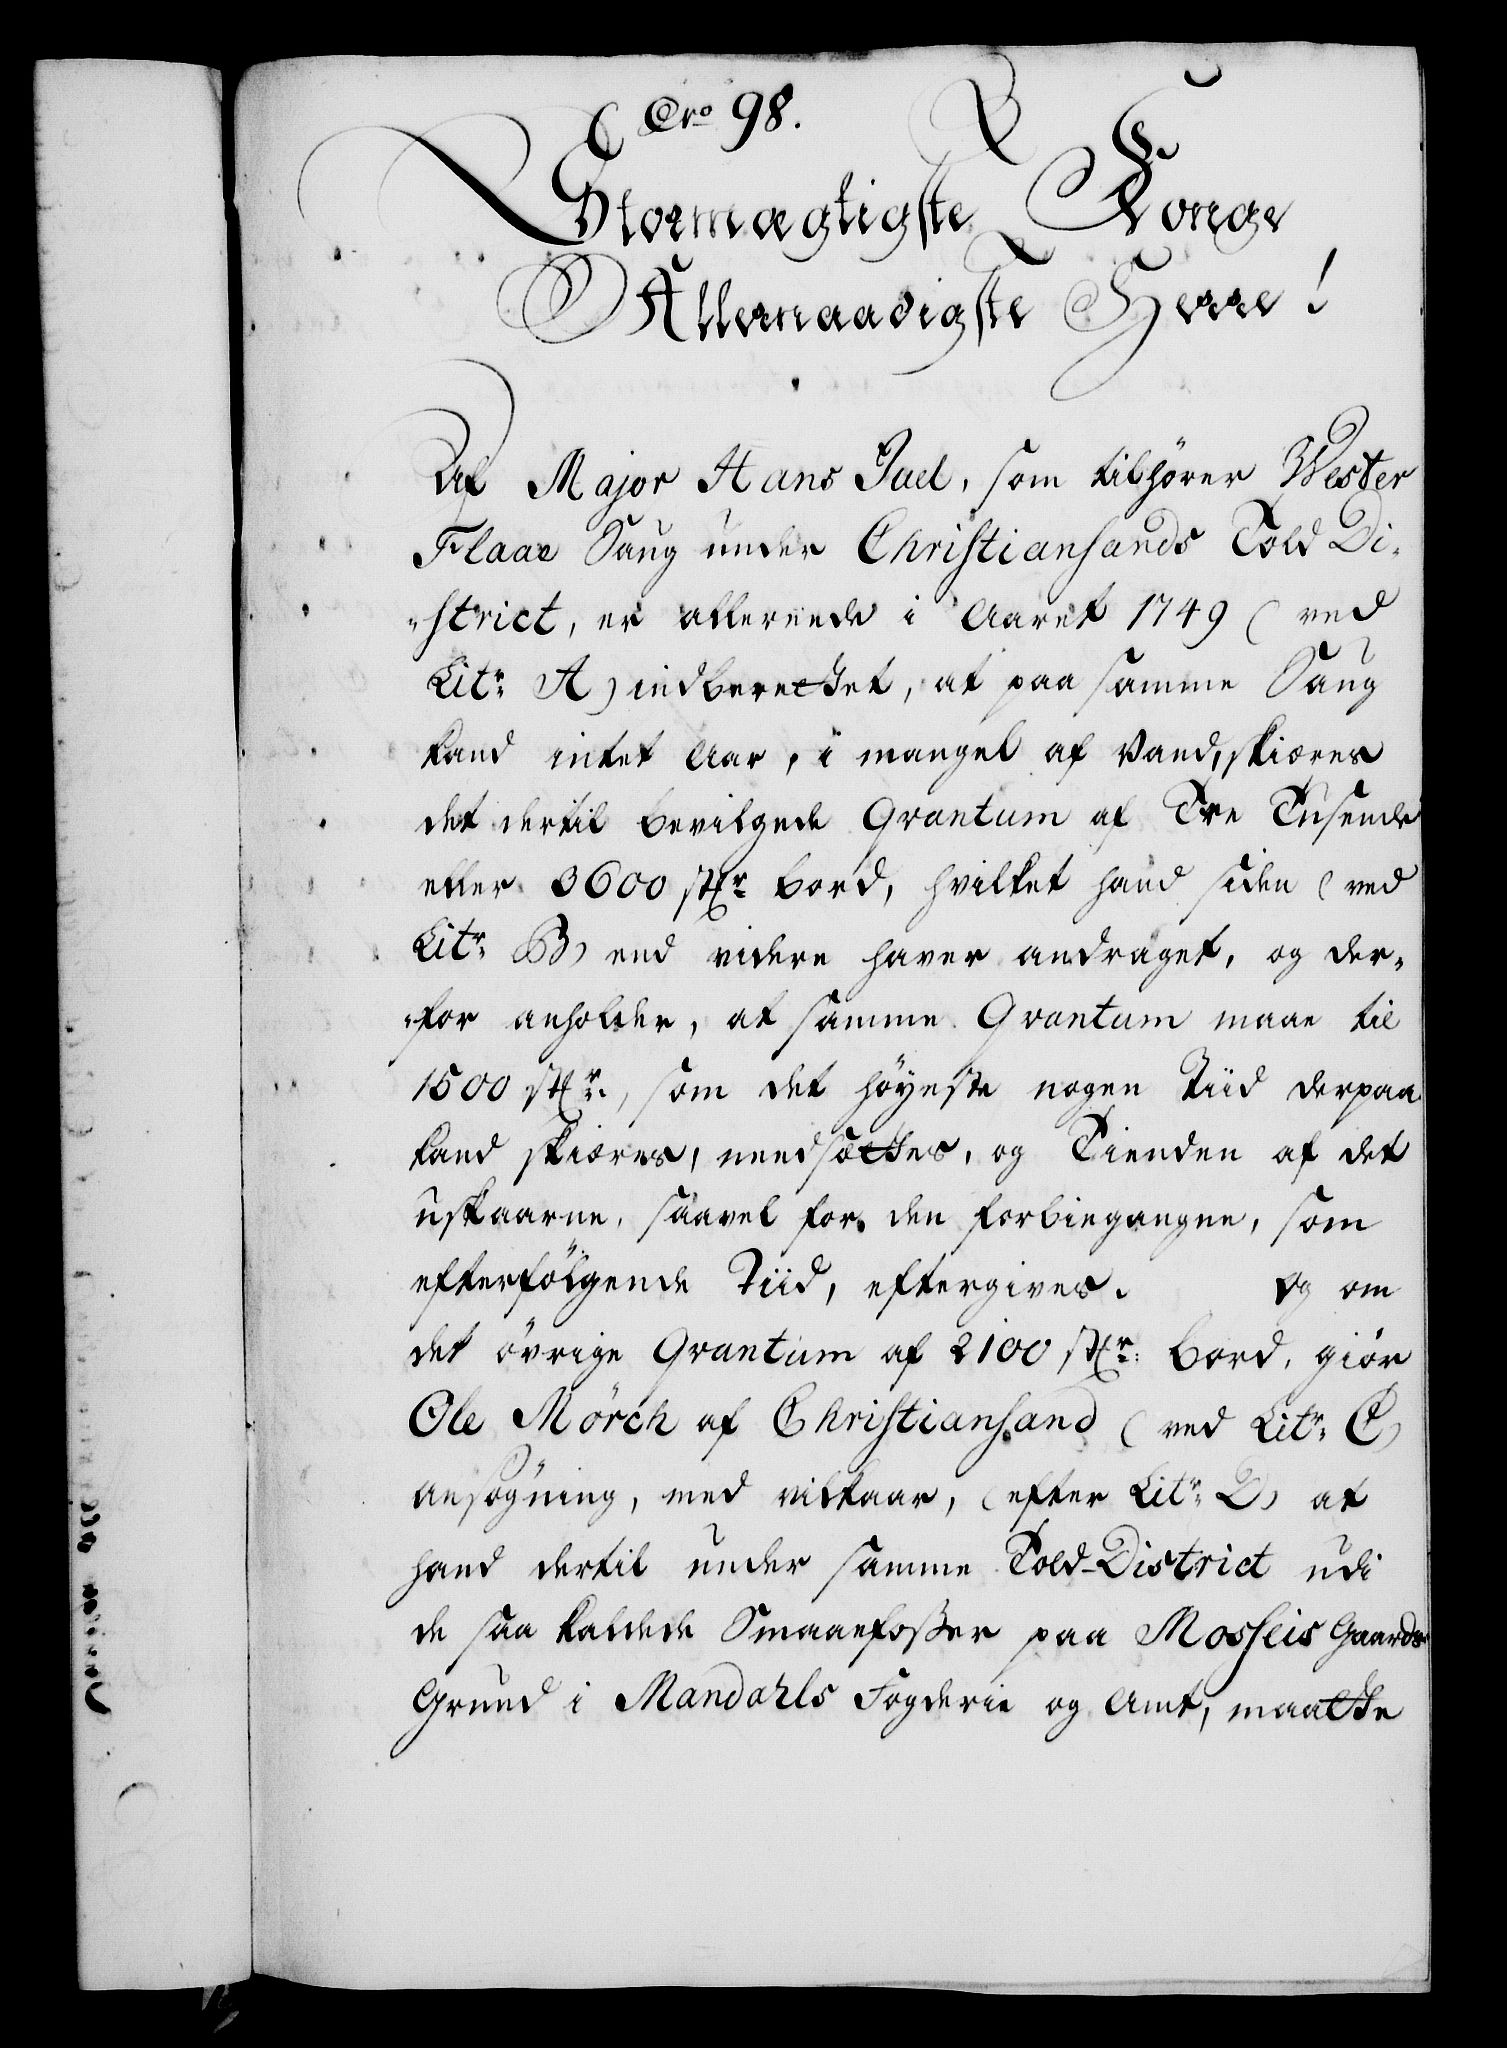 Nro 98.
Stormægtigste Konge
Allernaadigste Herre!
Af Major Hans Juel, som tilhører Wester
Flaae Saug under Christiansands Told Di-
-strict, er allereede i Aaret 1749 (ved
Litr: A) indberettet, at paa samme Saug
kand intet Aar, i mangel af Vand, skiæres
det dertil bevilgede Qvantum af Tre Tusende
eller 3600 stkr: bord, hvilket hand siden (ved
Litr: B) end videre haver andraget, og der-
-for anholder, at samme Qvantum maae til
1500 stkr:, som det høyeste nogen Tiid derpaa
kand skiæres, needsættes, og Tienden af det
uskaarne, saavel for den forbiegangne, som
efterfølgende Tiid, eftergives. Og om
det øvrige Qvantum af 2100 stkr: bord, giør
Ole Mörch af Christiansand (ved Litr: C)
ansøgning, med vilkaar, (efter Litr: D) at
hand dertil under samme Told-District udi
de saa kaldede Smaaefosser paa Mosseis Gaards
Grund i Mandahls Fogderie og Amt, maatte